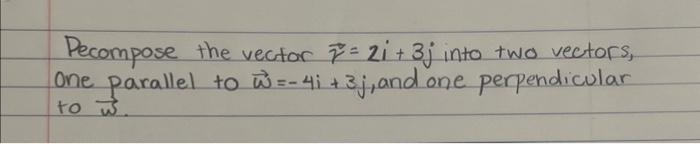 Decompose the vector v⃗ = 2i + 3j into two vectors,
one parallel to w⃗ = -4i + 3j, and one perpendicular
to w⃗.